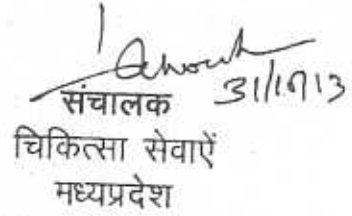 31/10/13
संचालक
चिकित्सा सेवाऐं
मध्यप्रदेश